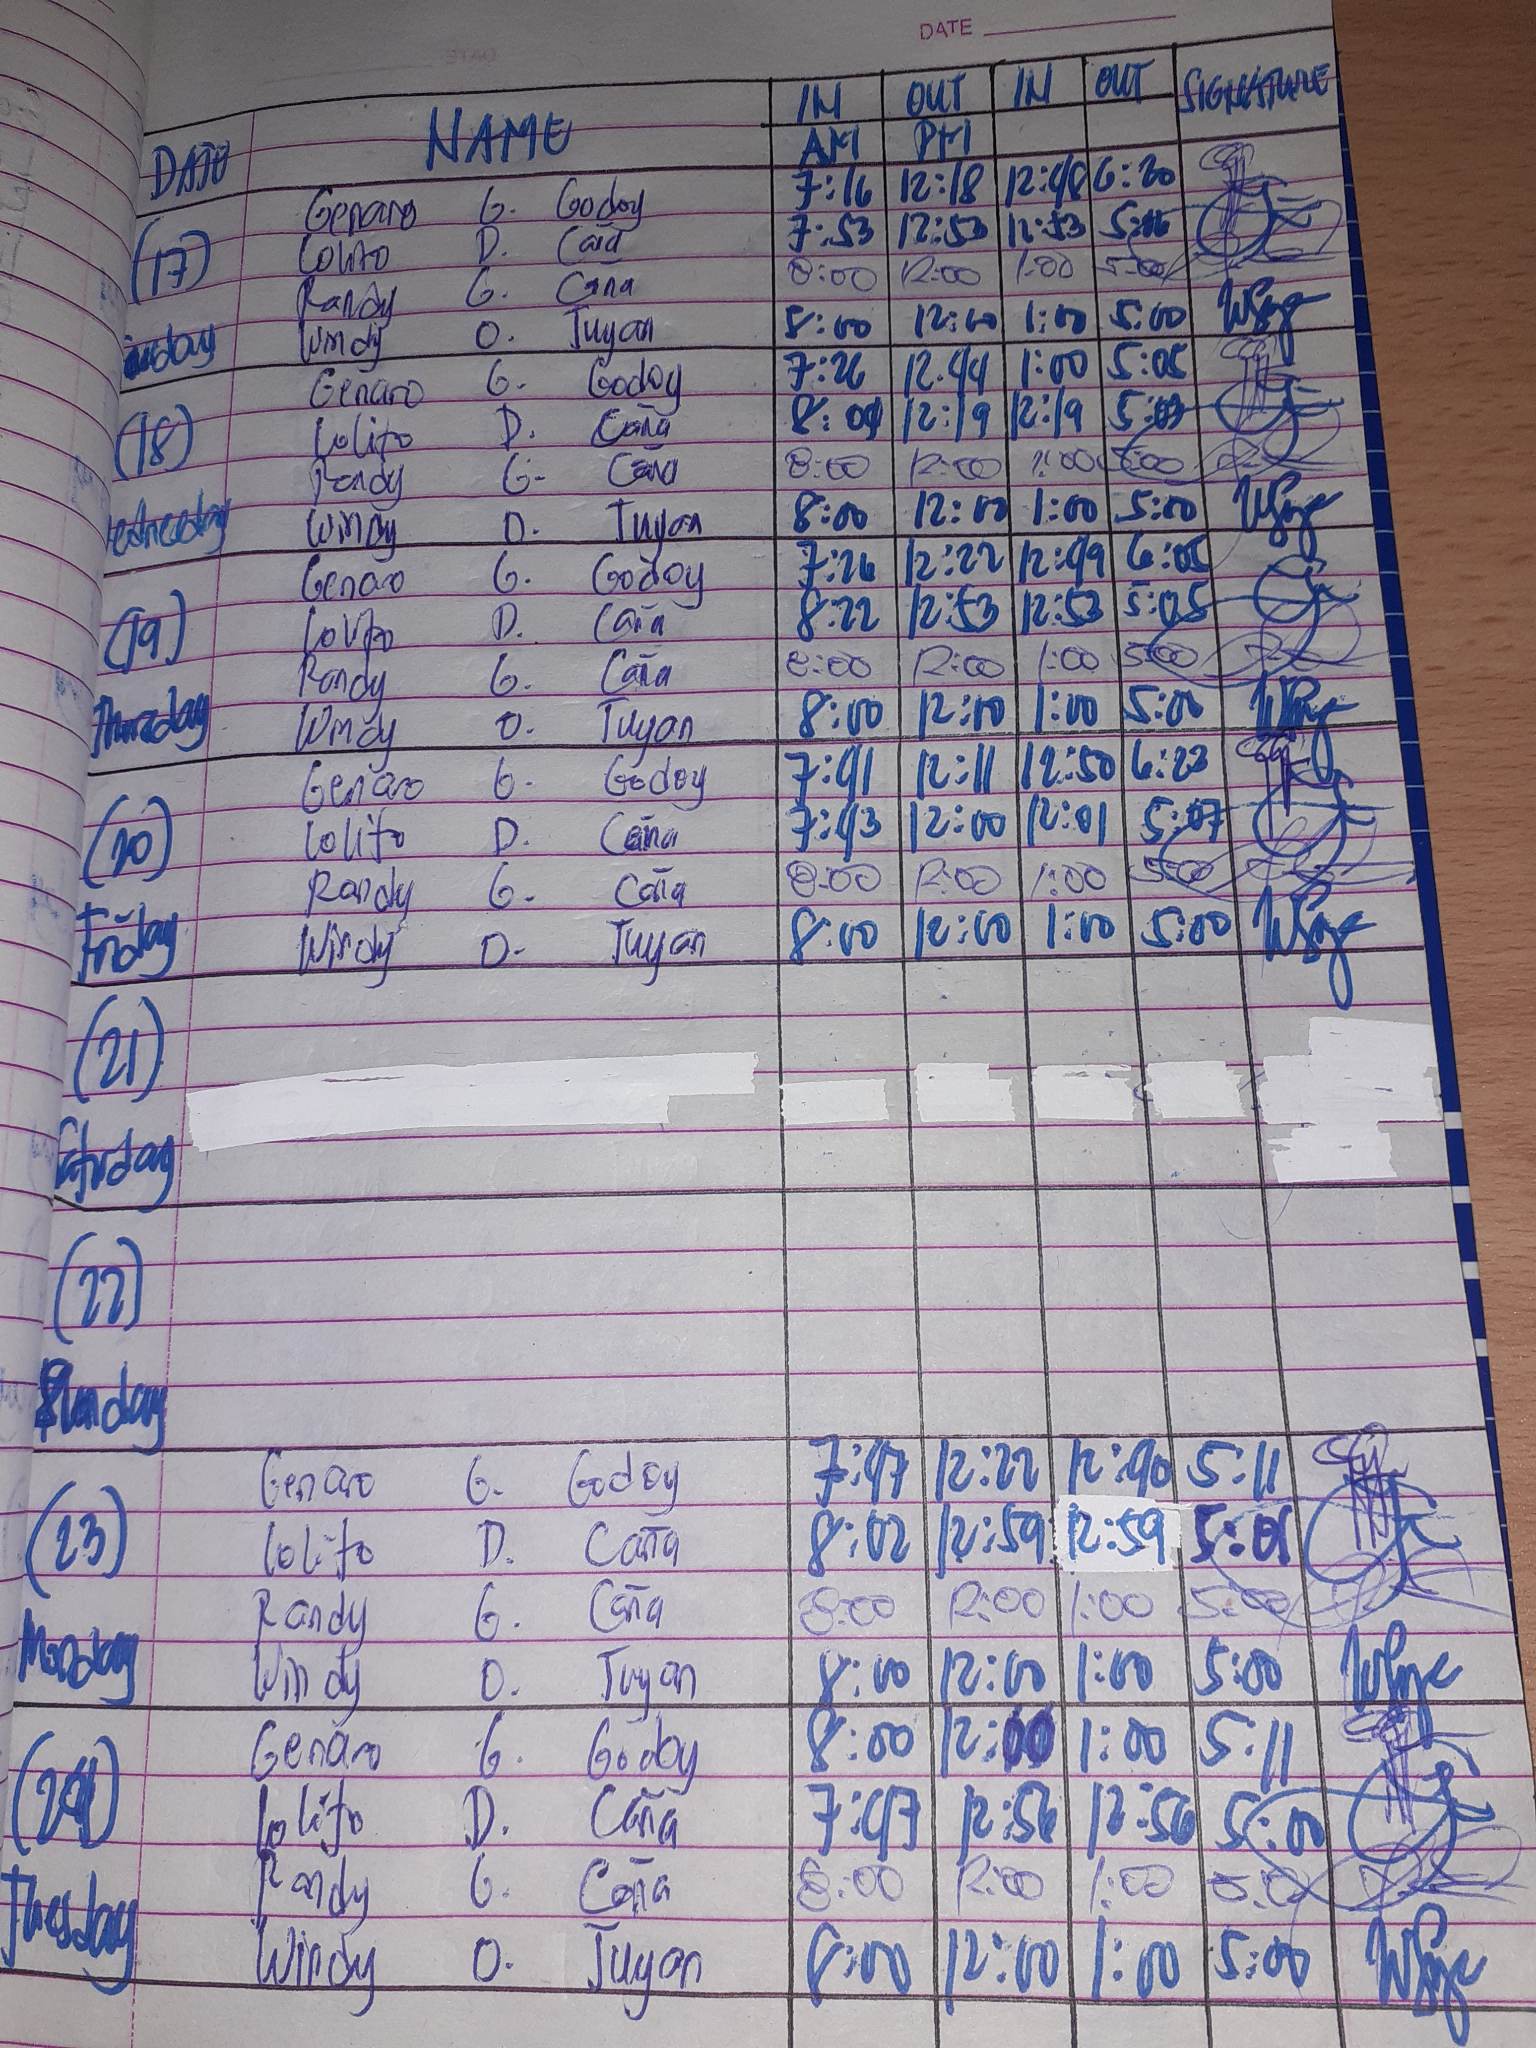 DATE
DATE NAME IN OUT IN OUT SIGNATURE
AM PM
Genaro G. Godoy 7:16 12:18 12:48 6:20
(17) Lolito D. Caña 7:53 12:53 12:53
Randy G. Caña 8:00 12:00 1:00 5:00
Windy O. Tuyan 8:00 12:00 1:00 5:00
Genaro G. Godoy 7:26 12:44 1:00 5:05
(18) Lolito D. Caña 12:19 12:19 5:03
Randy G. Caña 8:00 12:00 1:00 5:00
Wednesday Windy O. Tuyan 8:00 12:00 1:00 5:00
Genaro G. Godoy 7:26 12:22 12:49 6:05
(19) Lolito D. Caña 8:22 12:53 12:53 5:05
Randy G. Caña 8:00 12:00 1:00 5:00
Thursday Windy O. Tuyan 8:00 12:00 1:00 5:00
Genaro G. Godoy 7:41 12:11 12:50 6:23
(20) Lolito D. Caña 7:43 12:00 12:01 5:07
Randy G. Caña 8:00 12:00 1:00 5:00
Friday Windy O. Tuyan 8:00 12:00 1:00 5:00
(21)
Saturday
(22)
Sunday
Genaro G. Godoy 7:47 12:22 12:40 5:11
(23) Lolito D. Caña 8:02 12:59 12:59 5:01
Randy G. Caña 8:00 12:00 1:00 5:00
Monday Windy O. Tuyan 8:00 12:00 1:00 5:00
Genaro G. Godoy 8:00 12:00 1:00 5:11
(24) Lolito D. Caña 7:47 12:56 12:56 5:00
Randy G. Caña 8:00 12:00 1:00 5:00
Tuesday Windy O. Tuyan 8:00 12:00 1:00 5:00